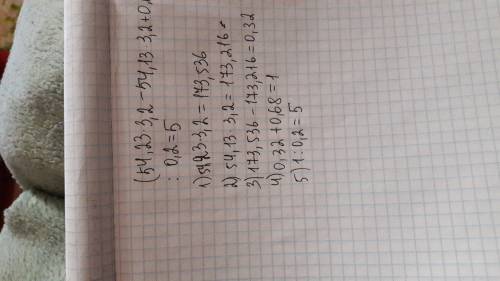 (54,23·3,2-54,13·3,2+0,
: 0,2=5
1) 54,23·3,2=173,536
2) 54,13·3,2=173,216
3) 173,536-173,216=0,32
4) 0,32+0,68=1
5) 1:0,2=5